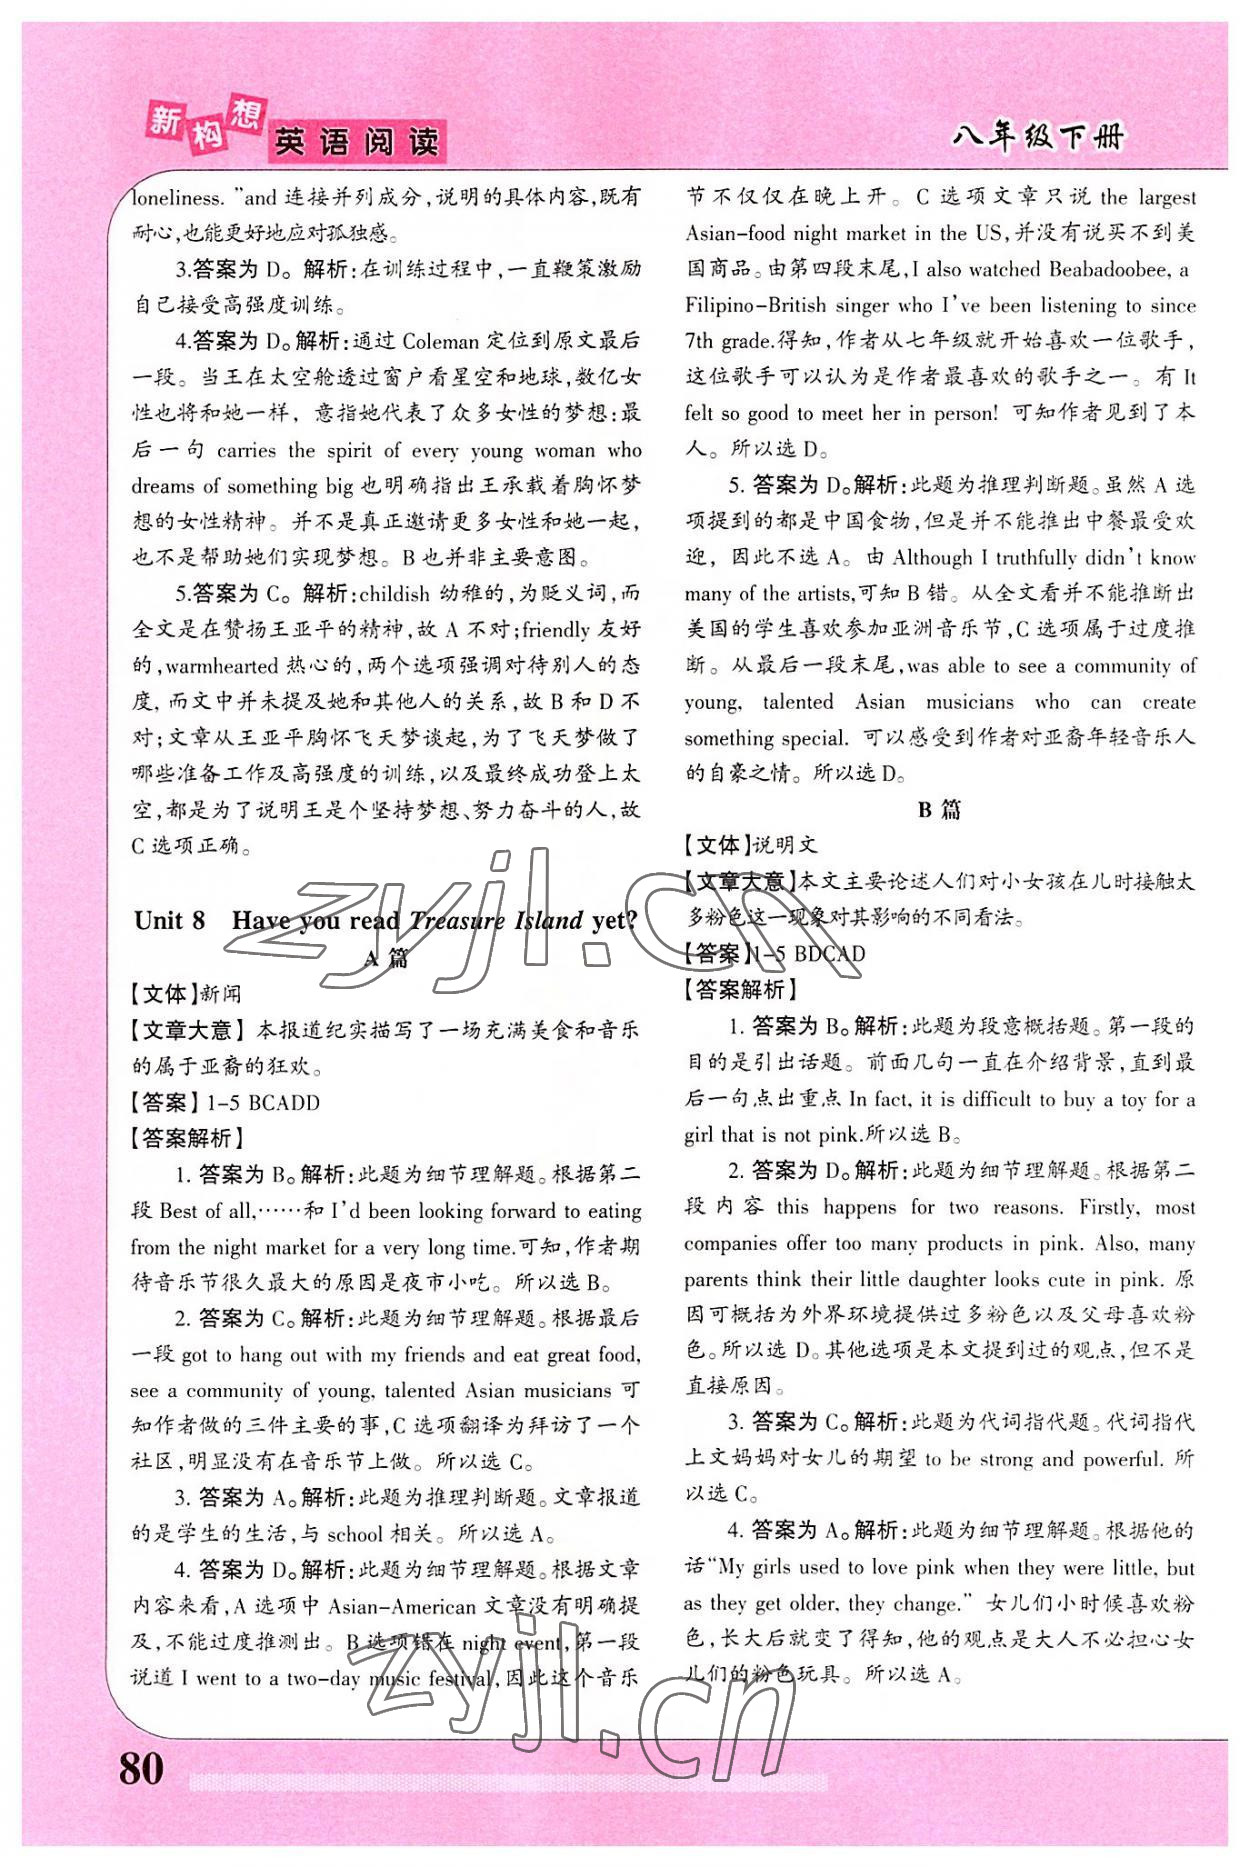 新构想
英语阅读
八年级下册
loneliness. ”and 连接并列成分,说明的具体内容,既有
耐心,也能更好地应对孤独感。
3.答案为 D。解析:在训练过程中,一直鞭策激励
自己接受高强度训练。
4.答案为 D。解析:通过 Coleman 定位到原文最后
一段。当王在太空舱透过窗户看星空和地球,数亿女
性也将和她一样, 意指她代表了众多女性的梦想:最
后一句 carries the spirit of every young woman who
dreams of something big 也明确指出王承载着胸怀梦
想的女性精神。并不是真正邀请更多女性和她一起,
也不是帮助她们实现梦想。B 也并非主要意图。
5.答案为 C。解析:childish 幼稚的,为贬义词,而
全文是在赞扬王亚平的精神,故 A 不对;friendly 友好
的,warmhearted 热心的,两个选项强调对待别人的态
度, 而文中并未提及她和其他人的关系,故 B 和 D 不
对;文章从王亚平胸怀飞天梦谈起,为了飞天梦做了
哪些准备工作及高强度的训练,以及最终成功登上太
空,都是为了说明王是个坚持梦想、努力奋斗的人,故
C 选项正确。
Unit 8 Have you read Treasure Island yet?
A 篇
【文体】新闻
【文章大意】 本报道纪实描写了一场充满美食和音乐
的属于亚裔的狂欢。
【答案】1-5 BCADD
【答案解析】
1. 答案为 B。解析:此题为细节理解题。根据第二
段 Best of all,……和 I’d been looking forward to eating
from the night market for a very long time.可知,作者期
待音乐节很久最大的原因是夜市小吃。所以选 B。
2. 答案为 C。解析:此题为细节理解题。根据最后
一段 got to hang out with my friends and eat great food,
see a community of young, talented Asian musicians 可
知作者做的三件主要的事,C 选项翻译为拜访了一个
社区,明显没有在音乐节上做。所以选 C。
3. 答案为 A。解析:此题为推理判断题。文章报道
的是学生的生活,与 school 相关。所以选 A。
4. 答案为 D。解析:此题为细节理解题。根据文章
内容来看,A 选项中 Asian-American 文章没有明确提
及,不能过度推测出。B 选项错在 night event,第一段
说道 I went to a two-day music festival,因此这个音乐
节不仅仅在晚上开。C 选项文章只说 the largest
Asian-food night market in the US,并没有说买不到美
国商品。由第四段末尾,I also watched Beabadoobee, a
Filipino-British singer who I’ve been listening to since
7th grade.得知,作者从七年级就开始喜欢一位歌手,
这位歌手可以认为是作者最喜欢的歌手之一。有 It
felt so good to meet her in person! 可知作者见到了本
人。所以选 D。
5. 答案为 D。解析:此题为推理判断题。虽然 A 选
项提到的都是中国食物,但是并不能推出中餐最受欢
迎, 因此不选 A。由 Although I truthfully didn’t know
many of the artists,可知 B 错。从全文看并不能推断出
美国的学生喜欢参加亚洲音乐节,C 选项属于过度推
断。从最后一段末尾,was able to see a community of
young, talented Asian musicians who can create
something special. 可以感受到作者对亚裔年轻音乐人
的自豪之情。所以选 D。
B 篇
【文体】说明文
【文章大意】本文主要论述人们对小女孩在儿时接触太
多粉色这一现象对其影响的不同看法。
【答案】1-5 BDCAD
【答案解析】
1. 答案为 B。解析:此题为段意概括题。第一段的
目的是引出话题。前面几句一直在介绍背景,直到最
后一句点出重点 In fact, it is difficult to buy a toy for a
girl that is not pink.所以选 B。
2. 答案为 D。解析:此题为细节理解题。根据第二
段内容 this happens for two reasons. Firstly, most
companies offer too many products in pink. Also, many
parents think their little daughter looks cute in pink. 原
因可概括为外界环境提供过多粉色以及父母喜欢粉
色。所以选 D。其他选项是本文提到过的观点,但不是
直接原因。
3. 答案为 C。解析:此题为代词指代题。代词指代
上文妈妈对女儿的期望 to be strong and powerful. 所
以选 C。
4. 答案为 A。解析:此题为细节理解题。根据他的
话“My girls used to love pink when they were little, but
as they get older, they change.” 女儿们小时候喜欢粉
色,长大后就变了得知,他的观点是大人不必担心女
儿们的粉色玩具。所以选 A。
80
zyjl.cn
zyjl.cn